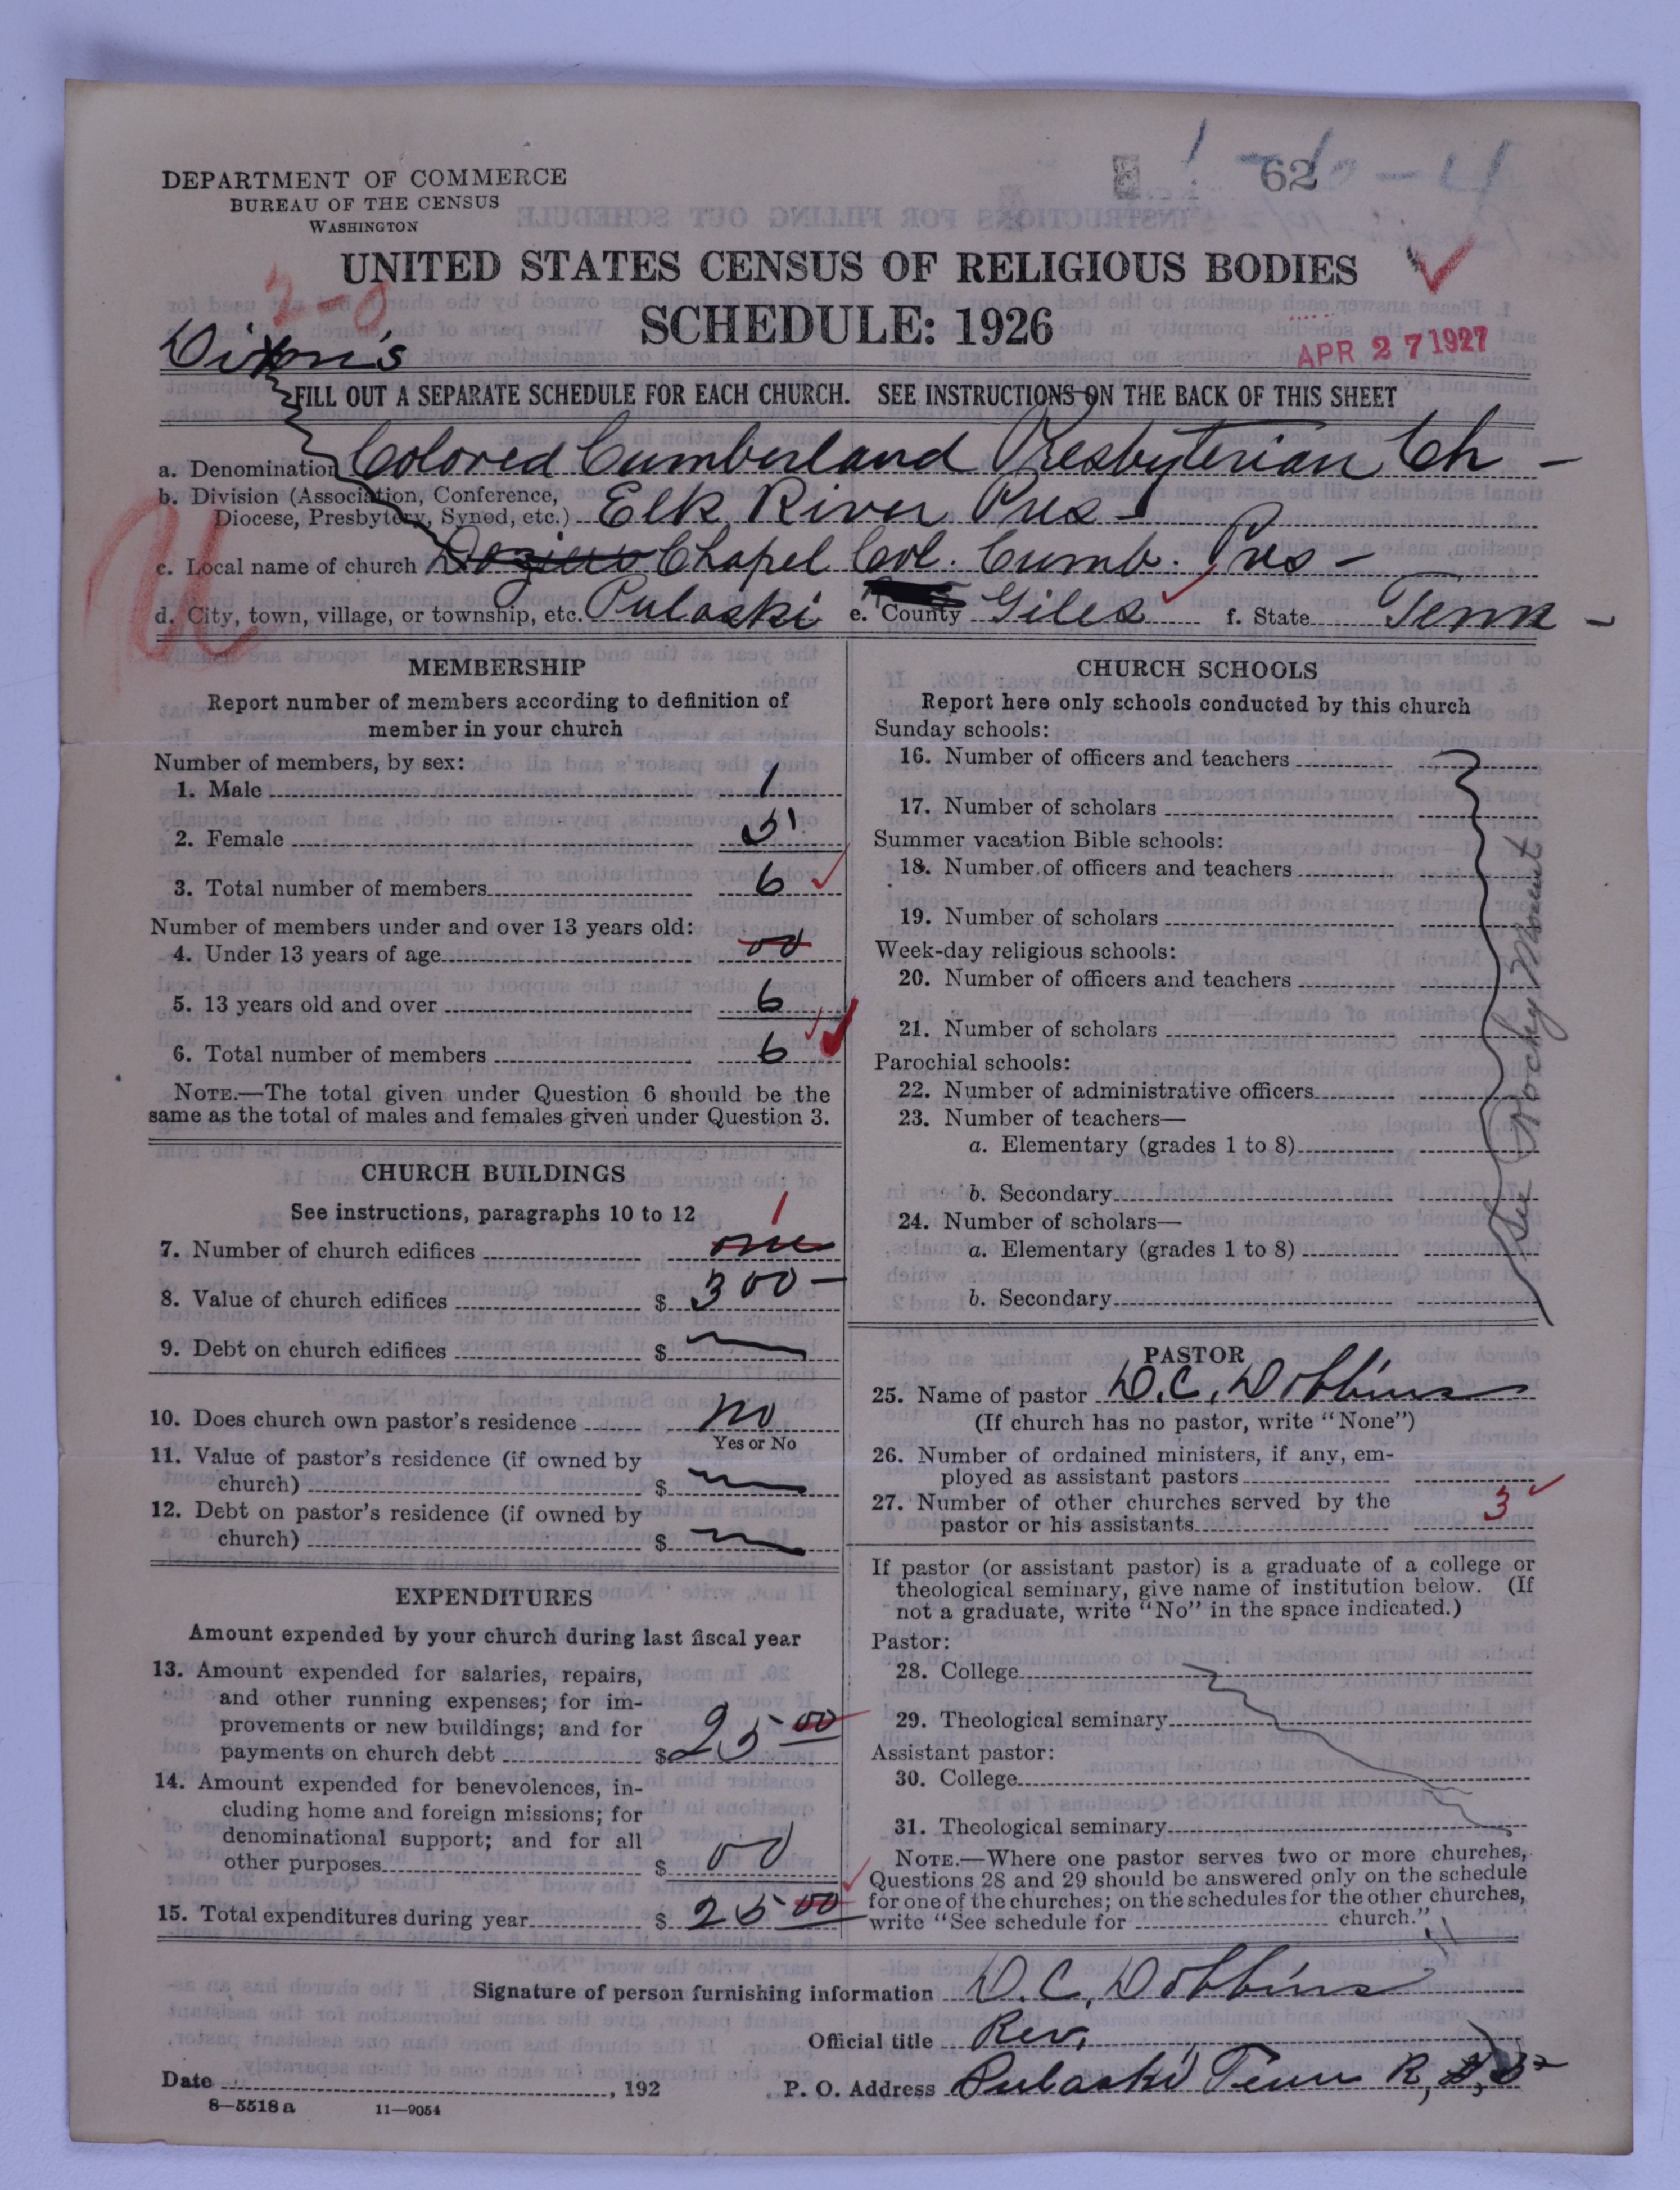 DEPARTMENT OF COMMERCE
BUREAU OF THE CENSUS
WASHINGTON
62
UNITED STATES CENSUS OF RELIGIOUS BODIES
SCHEDULE: 1926
2-0
APR 27 1927
Dixon's
FILL OUT A SEPARATE SCHEDULE FOR EACH CHURCH. SEE INSTRUCTIONS ON THE BACK OF THIS SHEET
a. Denomination Colored Cumberland Presbyterian Ch -
b. Division (Association, Conference,
Diocese, Presbytery, Synod, etc.) Elk River Pres -
c. Local name of church Chapel Col. Cumb. Pres -
d. City, town, village, or township, etc. Pulaski e. County Giles f. State Tenn -
MEMBERSHIP
Report number of members according to definition of
member in your church
Number of members, by sex:
1. Male 1
2. Female 5
3. Total number of members 6
Number of members under and over 13 years old:
4. Under 13 years of age 00
5. 13 years old and over 6
6. Total number of members 6
NOTE.—The total given under Question 6 should be the
same as the total of males and females given under Question 3.
CHURCH BUILDINGS
See instructions, paragraphs 10 to 12
1
7. Number of church edifices one
8. Value of church edifices $ 300 -
9. Debt on church edifices $
10. Does church own pastor's residence No
Yes or No
11. Value of pastor's residence (if owned by
church) $
12. Debt on pastor's residence (if owned by
church) $
EXPENDITURES
Amount expended by your church during last fiscal year
13. Amount expended for salaries, repairs,
and other running expenses; for im-
provements or new buildings; and for
payments on church debt $ 25 00
14. Amount expended for benevolences, in-
cluding home and foreign missions; for
denominational support; and for all
other purposes $ 00
15. Total expenditures during year $ 25 00
CHURCH SCHOOLS
Report here only schools conducted by this church
Sunday schools:
16. Number of officers and teachers
17. Number of scholars
Summer vacation Bible schools:
18. Number of officers and teachers
19. Number of scholars
Week-day religious schools:
20. Number of officers and teachers
21. Number of scholars
Parochial schools:
22. Number of administrative officers
23. Number of teachers—
a. Elementary (grades 1 to 8)
b. Secondary
24. Number of scholars—
a. Elementary (grades 1 to 8)
b. Secondary
See Rocky Mount
PASTOR
25. Name of pastor D. C. Dobbins
(If church has no pastor, write "None")
26. Number of ordained ministers, if any, em-
ployed as assistant pastors
27. Number of other churches served by the
pastor or his assistants 3
If pastor (or assistant pastor) is a graduate of a college or
theological seminary, give name of institution below. (If
not a graduate, write "No" in the space indicated.)
Pastor:
28. College
29. Theological seminary
Assistant pastor:
30. College
31. Theological seminary
NOTE.—Where one pastor serves two or more churches,
Questions 28 and 29 should be answered only on the schedule
for one of the churches; on the schedules for the other churches,
write "See schedule for church."
Signature of person furnishing information D. C. Dobbins
Official title Rev.
Date , 192 P. O. Address Pulaski Tenn R,
8-5518 a 11-9054